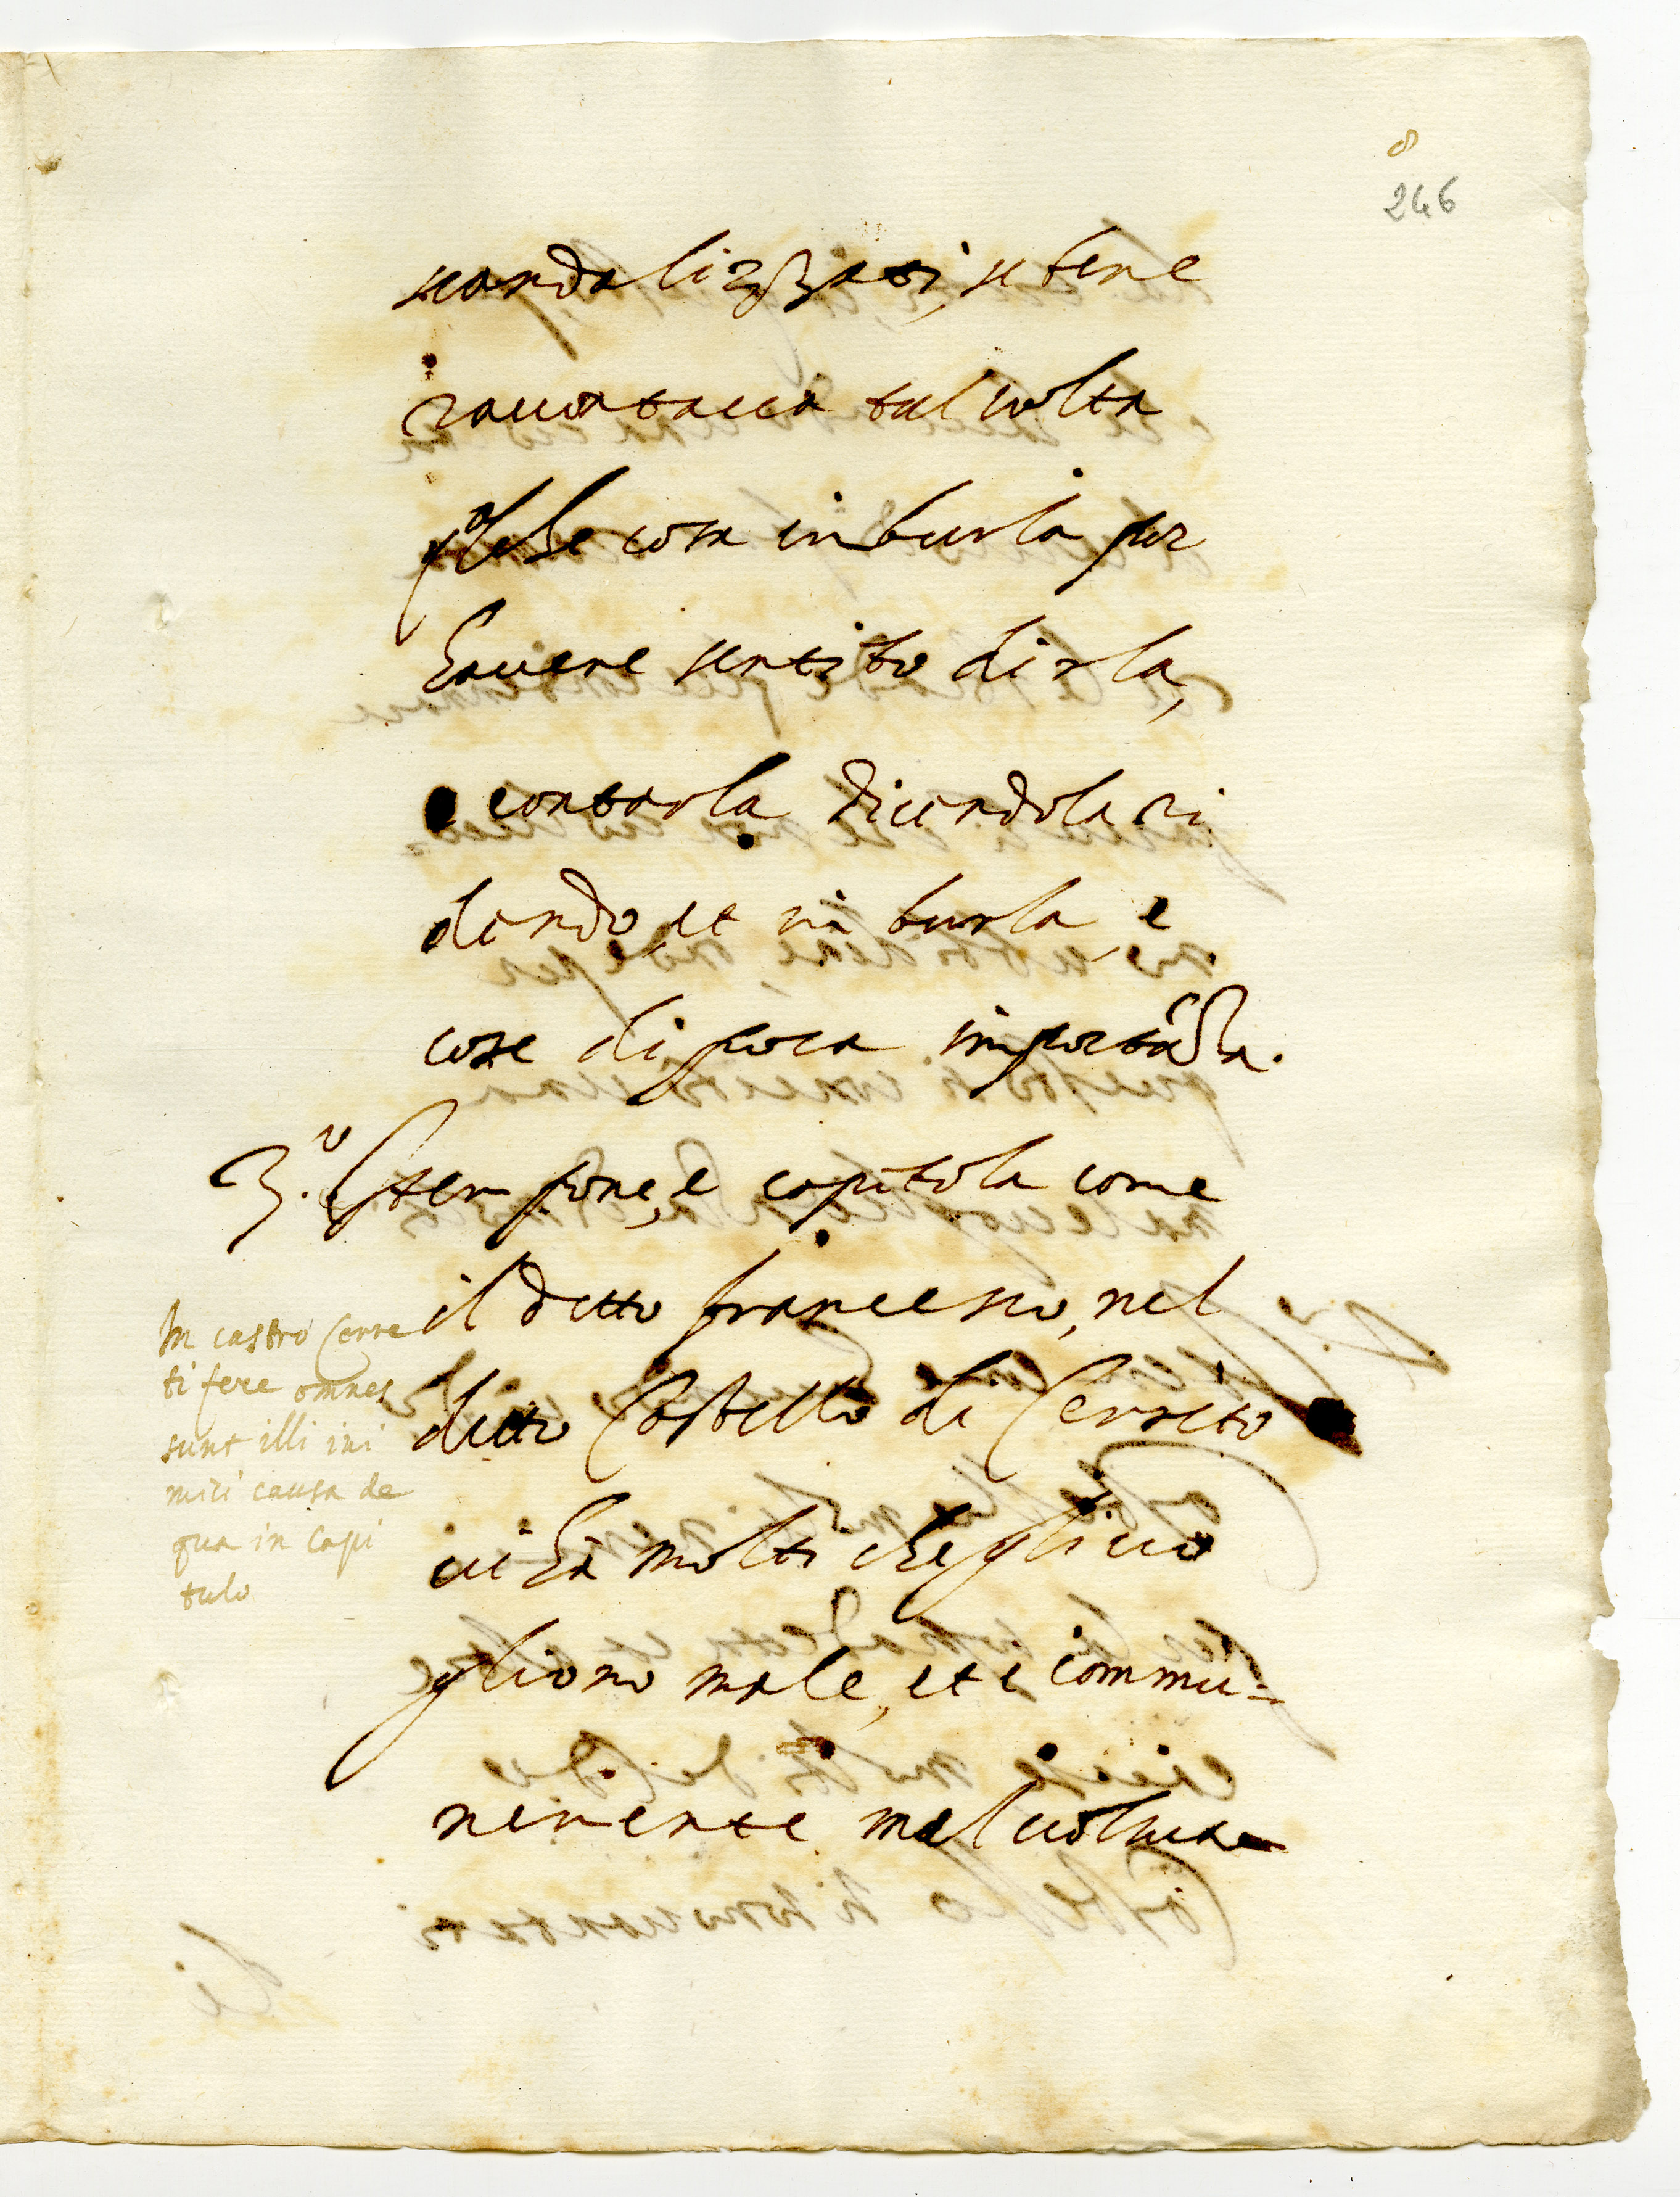 8
246
scandalizzati, se bene
raccontaua tal uolta
qualche cosa in burla per
hauere sentito dirla,
e contarla dicendola ri
dendo, et in burla, e
cose di poca importāza.
3.º Item pone, e capitola come
il detto francesco, nel
detto Castello di Cerreto
ui hà molti che gli uo
gliono male, et è commu=
nemente mal uoluto
In castro Cerre
ti fere omnes
sunt illi ini
mici causa de
qua in capi
tulo